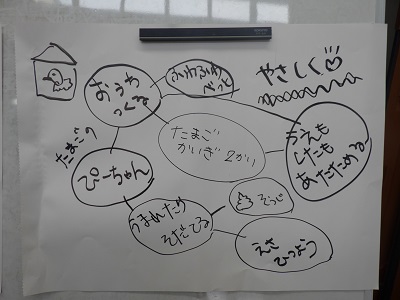 おうち
つくる
ふわふわ
べっと
やさしく
たまご
かいぎ2かい
うえも
したも
あたためる
たまごの
ぴーちゃん
うまれたら
そだてる
そうじ
えさ
ひつよう